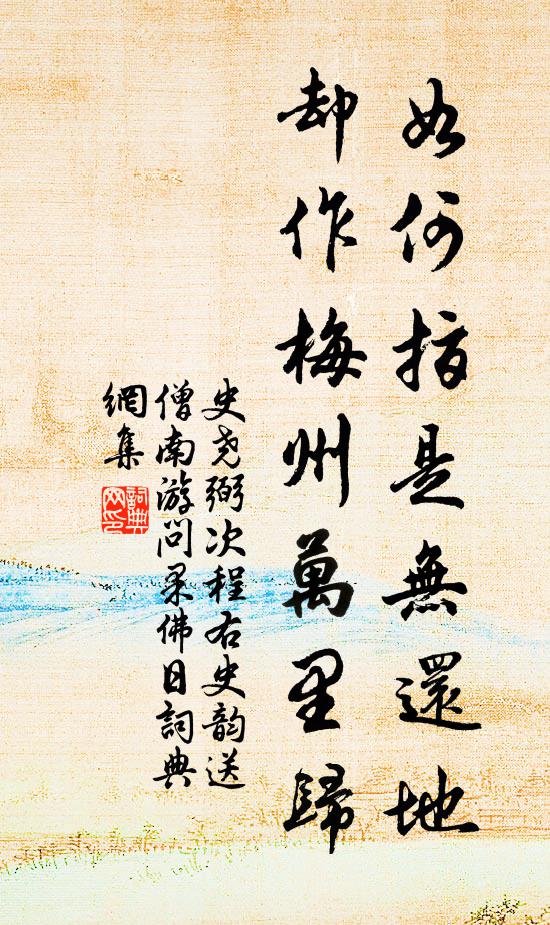 如何指是無還地
却作梅州萬里歸
史尧弼次程右史韵送
僧南游问杲佛日詞典
網集
詞典
网印